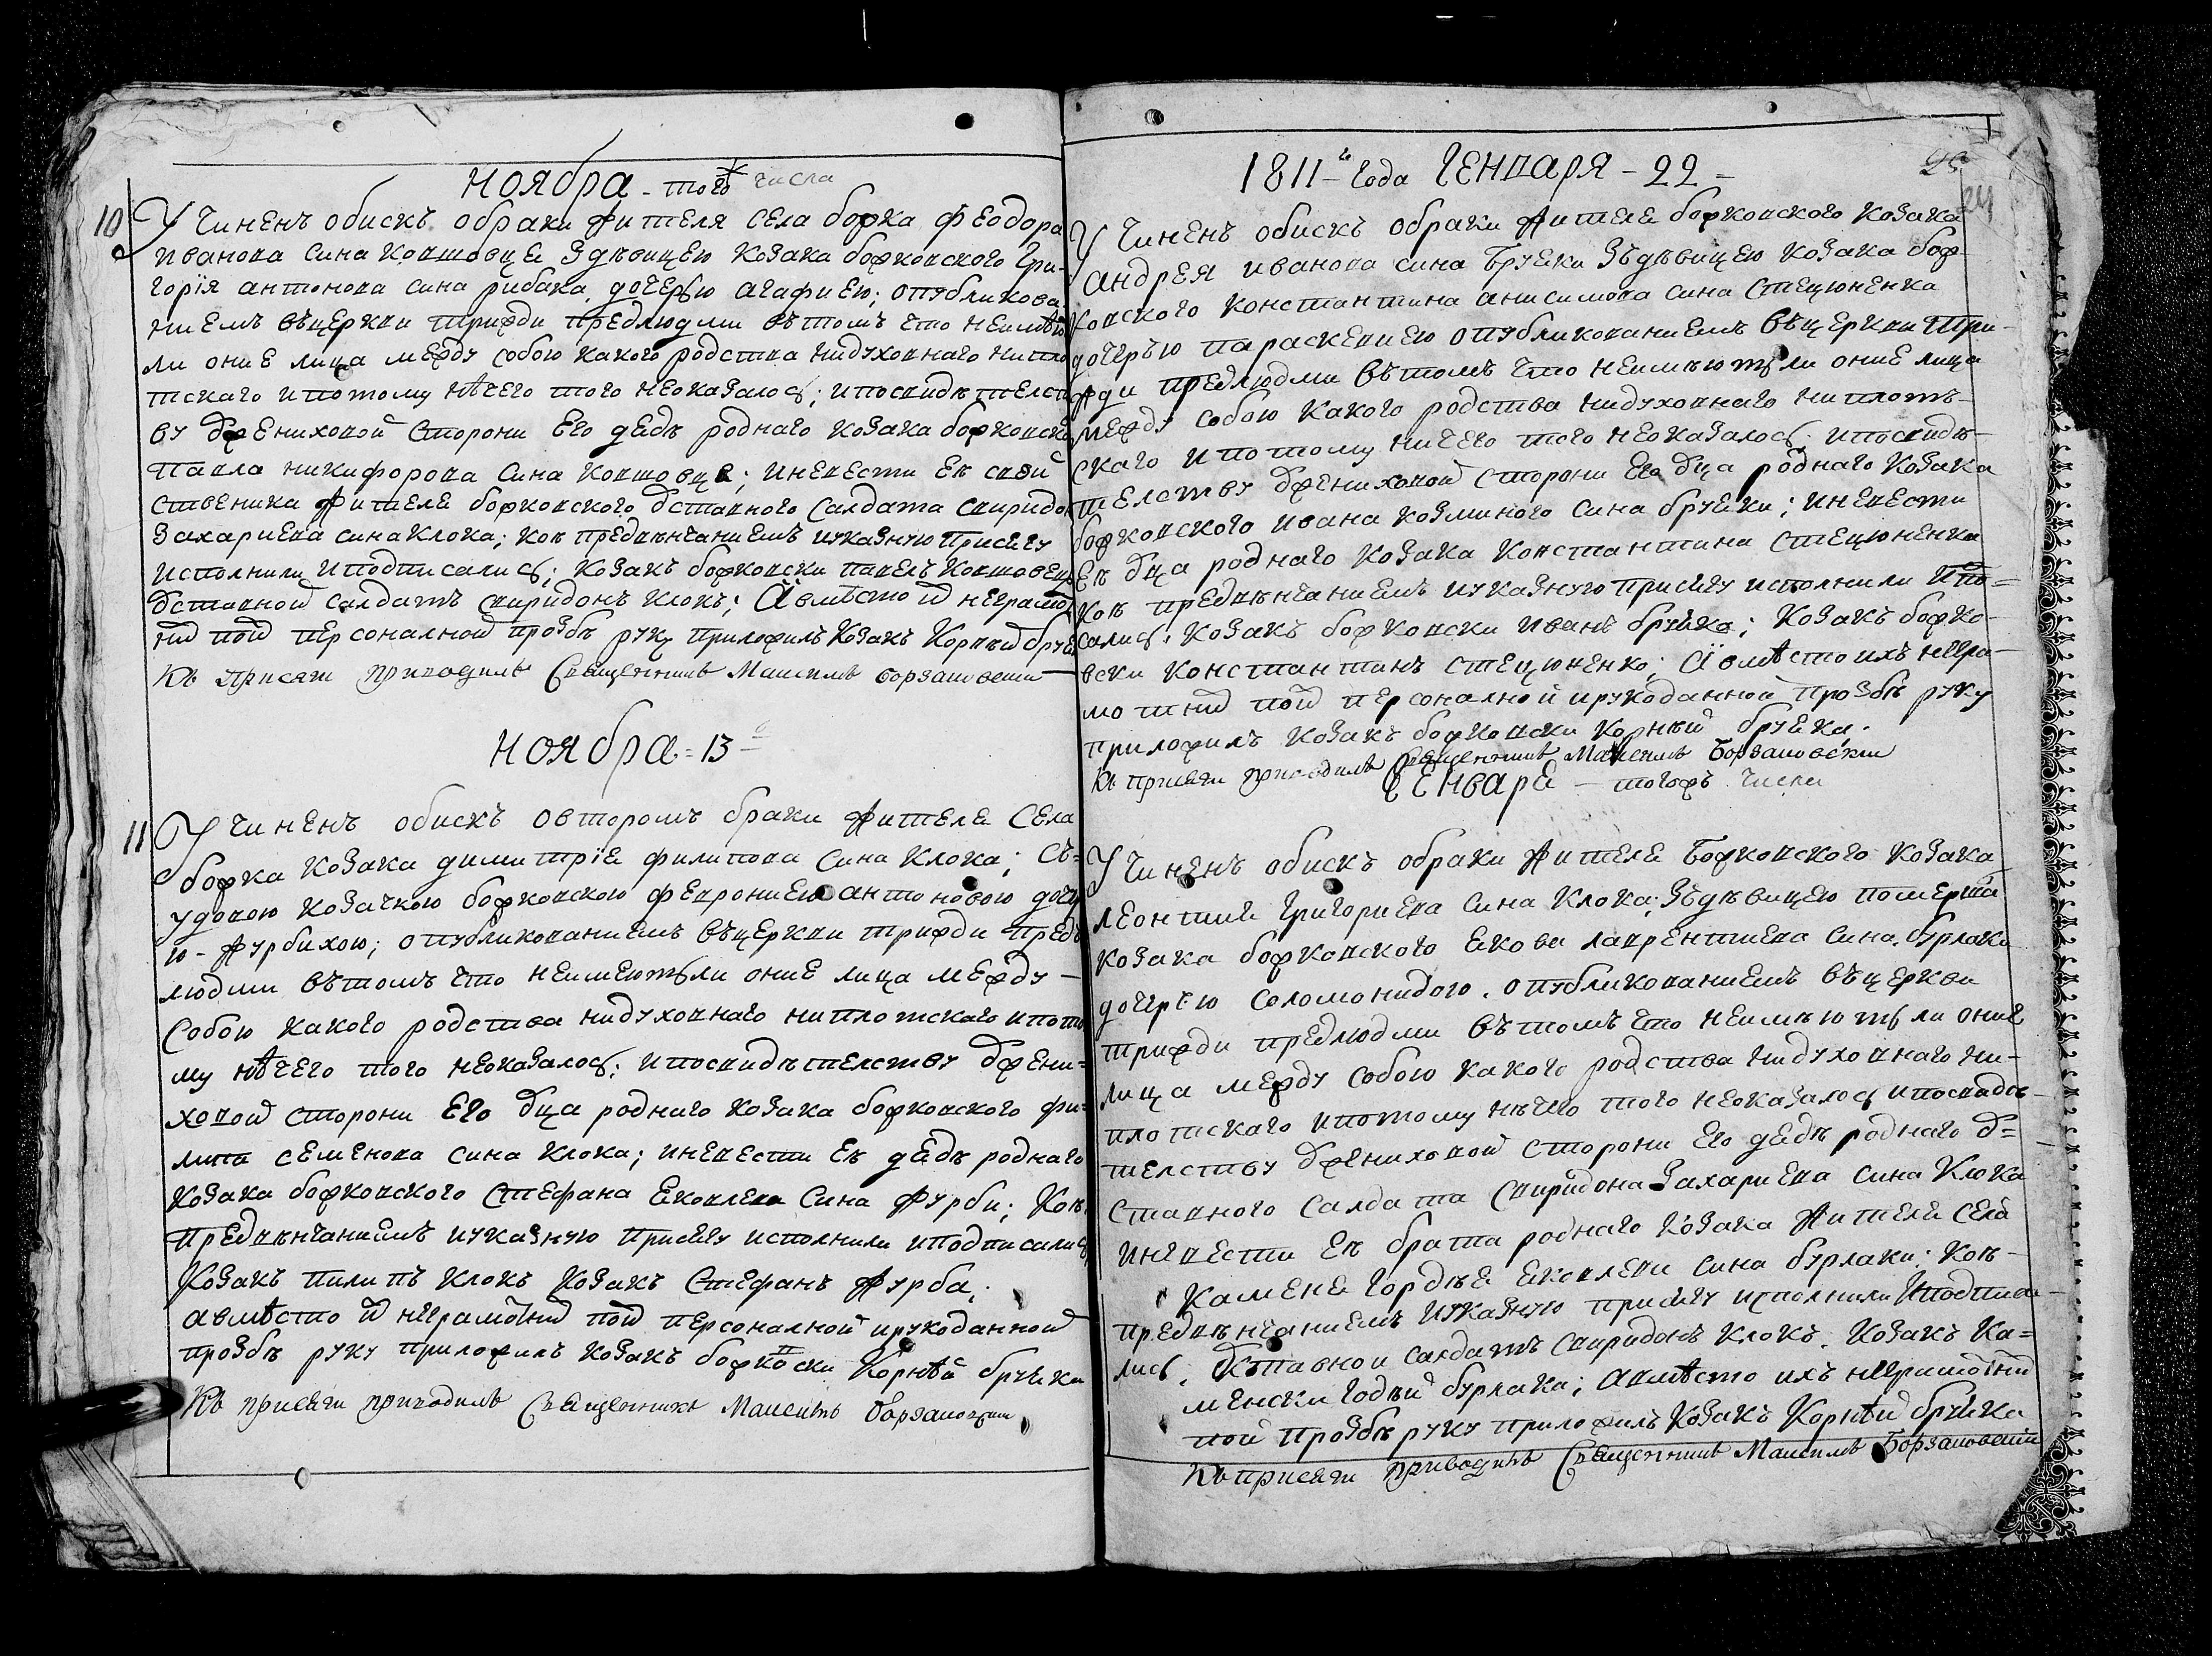 Ноября - того ж числа
10 Учиненъ обискъ обраки жителя села божка Феодора
Иванова сина Ковшовце Здѣвицею Козака божковского Гри-
горїя антонова сина рибака, дочерью агафиею; опубликова-
ниемъ въцеркви трижди предлюдми вътомъ что неимѣю
ли оние лица между собою какого родства нидуховнаго нипло
тскаго ипотому нѣчего того неказалось; ипосвидѣтелст
ву ѿжениховой стороны Его дѣдѣ роднаго козака божковско
павла никифорова сина Ковшовце; иневести Еѣ свой
ственика жителе божковского ѿставного салдата свиридо
Захариева сина Клока; кои предвѣнчаниемъ иуказную присегу
исполнили иподписались; козакъ божковски павелъ Ковшовец
ѿставной салдатъ свиридонъ клокъ; а вмѣсто ихъ неграмот
нихъ поих персоналной прозбѣ руку приложилъ Козакъ Корнѣй бруе
Къ присяги приводилъ Священникъ Максимъ борзаковски
Ноября = 13 -
11 Учиненъ обискъ овторомъ браки жителе Села
божка Козака димитрїе филипова сина Клока; съ=
удовою козачкою божковскою феврониею антоновою дочер
ю - журбихою; опубликованиемъ въцеркви трижди предъ
людми вътомъ что неимеютьли оние лица между -
собою какого родства нидуховнаго ниплотскаго ипото
му нѣчего того неоказалось; ипосвидѣтелству ѿжени=
ховой стороны Его ѿца роднаго козака божковского фи-
липа семенова сина клока; иневести Еѣ дѣдѣ роднаго
козака божковского Стефана Ековлева Сина Журби; Кои
предвѣнчаниемъ иуказную присегу исполнили иподписались
Козакъ пилипъ клокъ Козакъ Стефанъ Журба;
авмѣсто ихъ неграмотнихъ поих персоналной ирукоданной
прозбѣ руку приложилъ козакъ божковски Корнѣй бруека
Къ присяги приводилъ Священникъ Максимъ борзаковски
1811го года Генваря - 22 -
24
Учиненъ обискъ обраки жителе божковского козака
андрея иванова сина Бруеки Зъдѣвицею козака бож-
ковского константина анисимова сина Стецюненка
дочерью параскевиею опубликованиемъ въцеркви три-
жди предлюдми вътомъ что неимѣютьли оние лица
между собою какого родства нидуховнаго ниплоть-
скаго ипотому ничего того неоказалось; ипосвидѣ-
телству ѿжениховой сторони Его ѿца роднаго козака
божковского ивана козминого сина бруеки; иневести
Еѣ ѿца роднаго козака Константина стецюненка
кои предвѣнчаниемъ иуказную присегу исполнили ипо=
сались; козакъ божковски иванъ бруека; козакъ божко-
вски константинъ стецюненко; а вмѣсто ихъ негра-
мотних поих персоналной ирукоданной прозбѣ руку
приложилъ козакъ божковски Корнѣй бруека;
Къ присяги приводилъ Священникъ Максимъ Борзаковски
Генваре - тогожъ числа
Учиненъ обискъ обраки жителе Божковского козака
леонтие григориева сина Клока; Зъдѣвицею померша
козака божковского Екова лаврентиева сина бурлаки
дочерею соломонидою. опубликованиемъ въцеркви
трижди предлюдми вътомъ что неимѣютьли оние
лица между собою какого родства нидуховнаго ни-
плотскаго ипотому нѣчего того неоказалось ипосвидѣ-
телству ѿжениховой сторони Его дѣдѣ роднаго ѿ=
ставного салдата Свиридона Захариева сина Клока
иневести Еѣ брата роднаго козака жителе села
Камене Гордѣе Ековлева сина бурлаки: Кои -
предвѣнчаниемъ иуказную присегу исполнили иподписа-
лись; Ѿставной салдатъ свиридонъ клокъ. Козакъ Ка=
менски Годѣй бурлака; авмѣсто ихъ неграмотних
поих прозбѣ руку приложилъ козакъ Корнѣй бруека
Къ присяги приводилъ Священникъ Максимъ Борзаковски